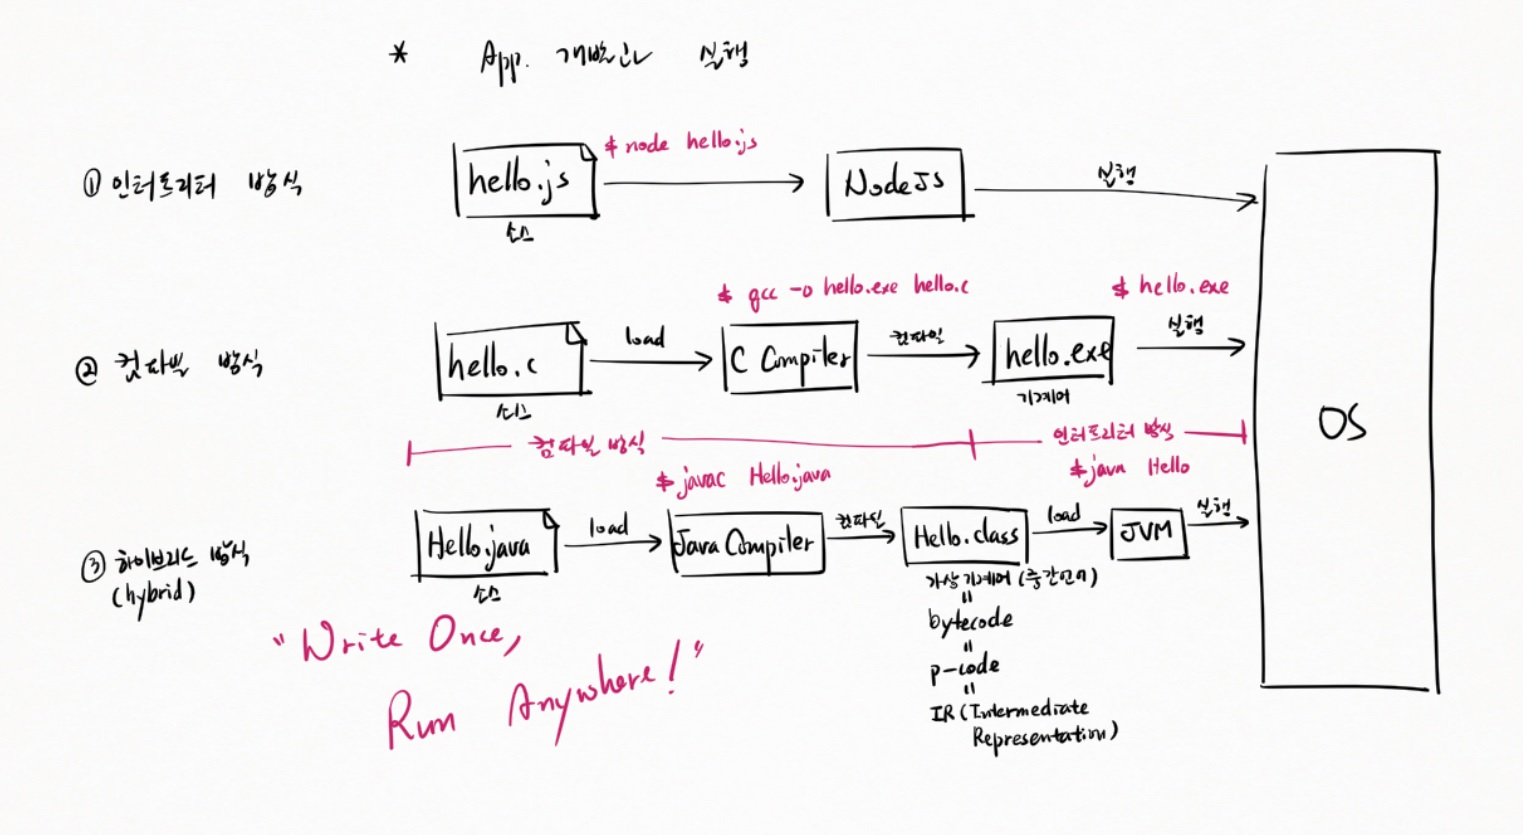 * App. 개발과 실행
① 인터프리터 방식
hello.js
소스
$ node hello.js
NodeJS
실행
OS
② 컴파일 방식
hello.c
소스
load
$ gcc -o hello.exe hello.c
C Compiler
컴파일
hello.exe
기계어
$ hello.exe
실행
컴파일 방식
인터프리터 방식
③ 하이브리드 방식
(hybrid)
Hello.java
소스
load
$ javac Hello.java
Java Compiler
컴파일
Hello.class
가상기계어 (중간언어)
"
bytecode
"
p-code
"
IR (Intermediate
Representation)
load
$ java Hello
JVM
실행
"Write Once,
Run Anywhere!"